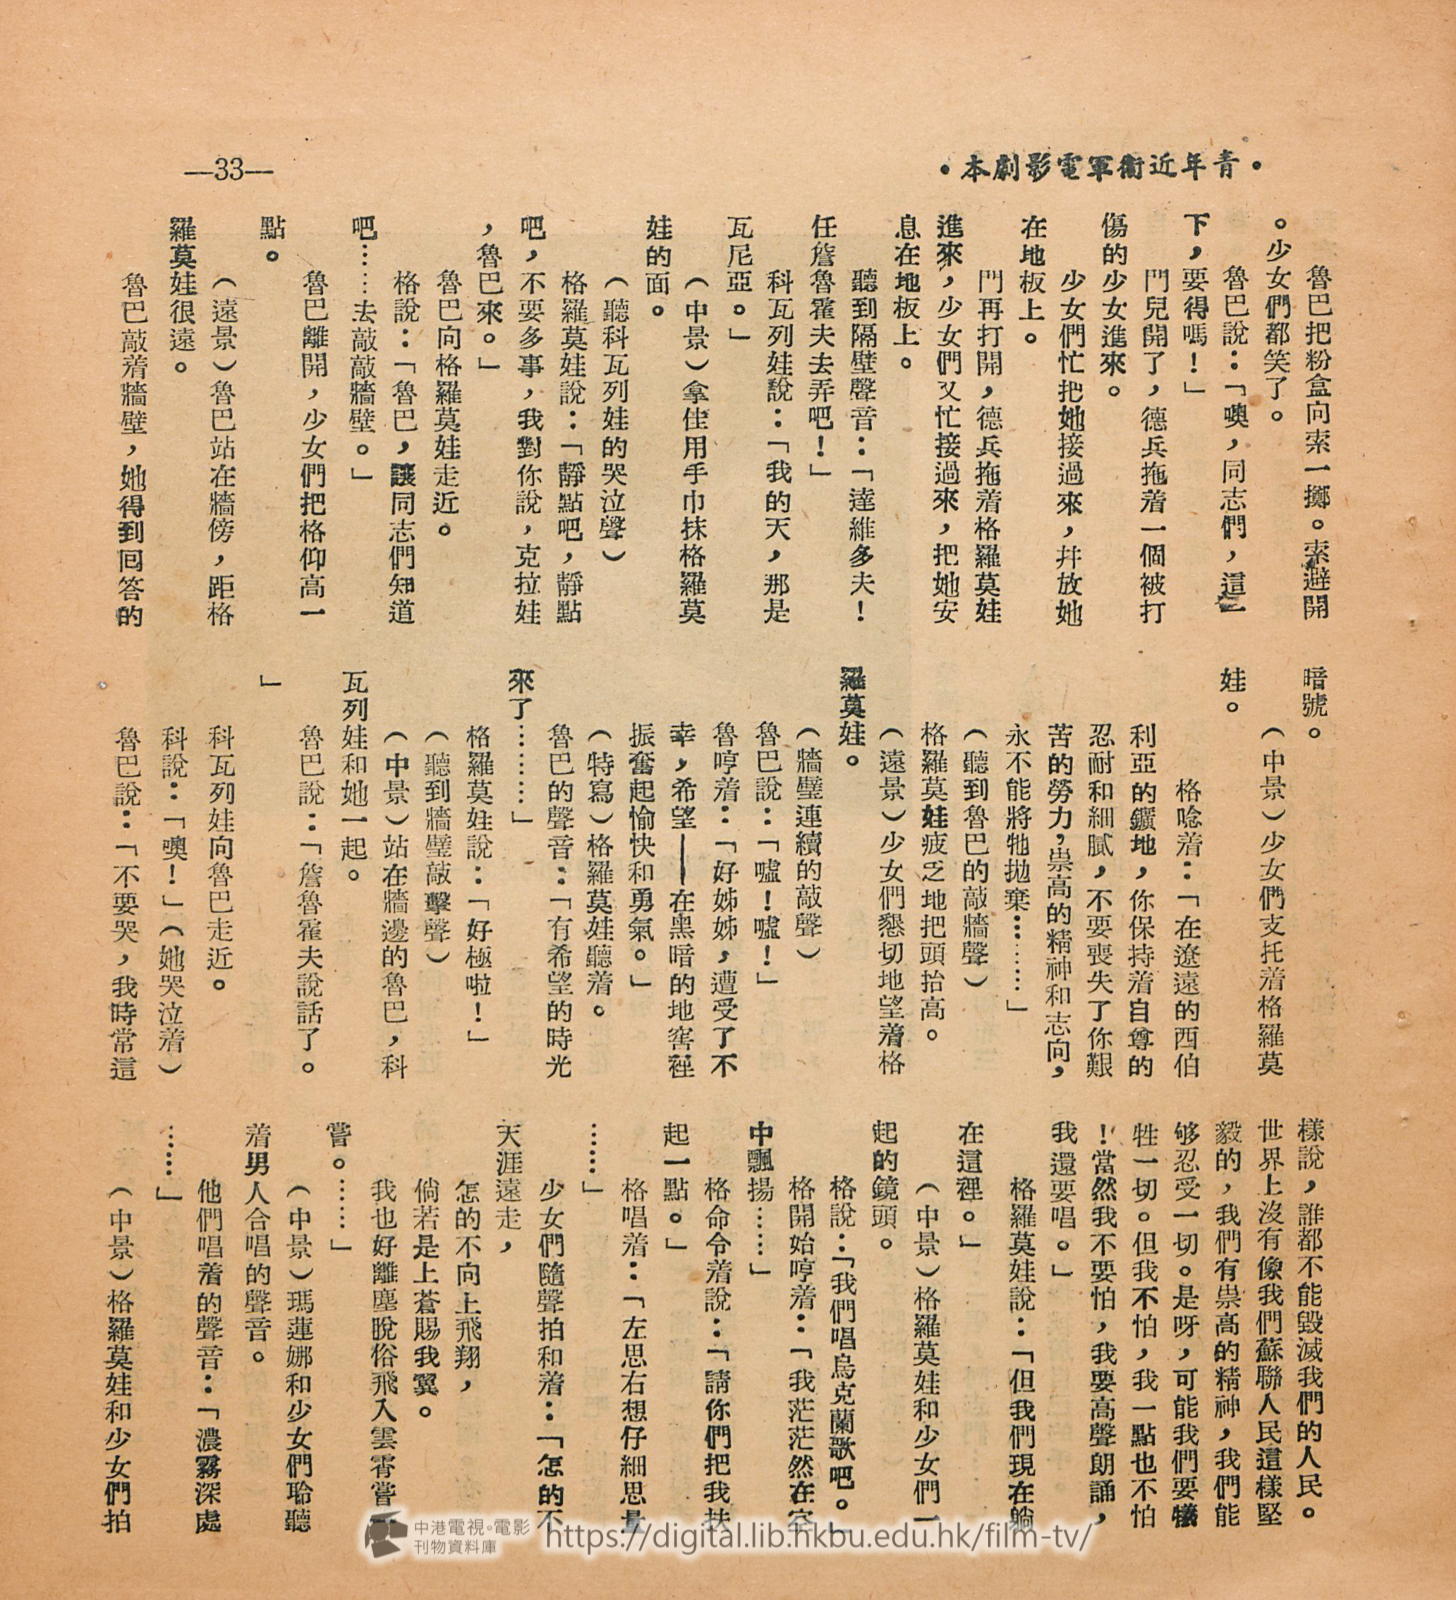 •本劇影電軍衞近年青•
—33—
魯巴把粉盒向索一擲。索避開
。少女們都笑了。
魯巴說：「噢，同志們，這一
下，要得嗎！」
門兒開了，德兵拖着一個被打
傷的少女進來。
少女們忙把她接過來，幷放她
在地板上。
門再打開，德兵拖着格羅莫娃
進來，少女們又忙接過來，把她安
息在地板上。
聽到隔壁聲音：「達維多夫！
任詹魯霍夫去弄吧！」
科瓦列娃說：「我的天，那是
瓦尼亞。」
（中景）拿住用手巾抹格羅莫
娃的面。
（聽科瓦列娃的哭泣聲）
格羅莫娃說：「靜點吧，靜點
吧，不要多事，我對你說，克拉娃
，魯巴來。」
魯巴向格羅莫娃走近。
格說：「魯巴，讓同志們知道
吧……去敲敲牆壁。」
魯巴離開，少女們把格仰高一
點。
（遠景）魯巴站在牆傍，距格
羅莫娃很遠。
魯巴敲着牆壁，她得到囘答的
暗號。
（中景）少女們支托着格羅莫
娃。
格唸着：「在遼遠的西伯
利亞的鑛地，你保持着自尊的
忍耐和細膩，不要喪失了你艱
苦的勞力，崇高的精神和志向，
永不能將牠拋棄………」
（聽到魯巴的敲牆聲）
格羅莫娃疲乏地把頭抬高。
（遠景）少女們懇切地望着格
羅莫娃。
（牆壁連續的敲聲）
魯巴說：「噓！噓！」
魯哼着：「好姊姊，遭受了不
幸，希望——在黑暗的地窖裡
振奮起愉快和勇氣。」
（特寫）格羅莫娃聽着。
魯巴的聲音：「有希望的時光
來了………」
格羅莫娃說：「好極啦！」
（聽到牆壁敲擊聲）
（中景）站在牆邊的魯巴，科
瓦列娃和她一起。
魯巴說：「詹魯霍夫說話了。
」
科瓦列娃向魯巴走近。
科說：「噢！」（她哭泣着）
魯巴說：「不要哭，我時常這
樣說，誰都不能毀滅我們的人民。
世界上沒有像我們蘇聯人民這樣堅
毅的，我們有崇高的精神，我們能
够忍受一切。是呀，可能我們要犠
牲一切。但我不怕，我一點也不怕
！當然我不要怕，我要高聲朗誦，
我還要唱。」
格羅莫娃說：「但我們現在躺
在這裡。」
（中景）格羅莫娃和少女們一
起的鏡頭。
格說：「我們唱烏克蘭歌吧。」
格開始哼着：「我茫茫然在空
中飄揚……」
格命令着說：「請你們把我扶
起一點。」
格唱着：「左思右想仔細思量
……」
少女們隨聲拍和着：「怎的不
天涯遠走，
怎的不向上飛翔，
倘若是上蒼賜我翼。
我也好離塵脫俗飛入雲霄嘗一
嘗。……」
（中景）瑪蓮娜和少女們聆聽
着男人合唱的聲音。
他們唱着的聲音：「濃霧深處
……」
（中景）格羅莫娃和少女們拍
中港電視•電影
刊物資料庫
https://digital.lib.hkbu.edu.hk/film-tv/